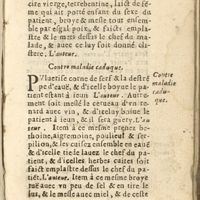 cire vierge, terebentine, laict de fé-
me qui ait porté enfant du sexe du
patient, broye & mesle tout ensem-
ble par esgal pois, & faicts empla-
stre & le mets dessus le chef du ma-
lade, & avec ce luy soit donné cli-
stere. L'auteur.
Contre maladie caduque.
PUluerise corne de serf & la destré-
pe d'eauë, & d'icelle boyue le pa-
tient estant à ieun L'auteur. Autre-
ment soit meslé le cerueau d'un re-
nard auec vin, & d'icelay boiue le
patient à ieun, & il sera guery. L'au-
teur. Item à ce mesme prenez be-
thoine, aigremoine, poulieul & ser-
pilion, & les cuisez ensemble en eauë
& d'icelle tiede lauez le chef du pa-
tient, & d'icelles herbes cuites soit
faict emplastre dessus le chef du pa-
tiét. L'auteur. Item à ce mesme broye
ruë auec vn peu de sel & en tire le
ius, & le mesle auec miel, & de ceste
Contre
maladie
cadu-
que.